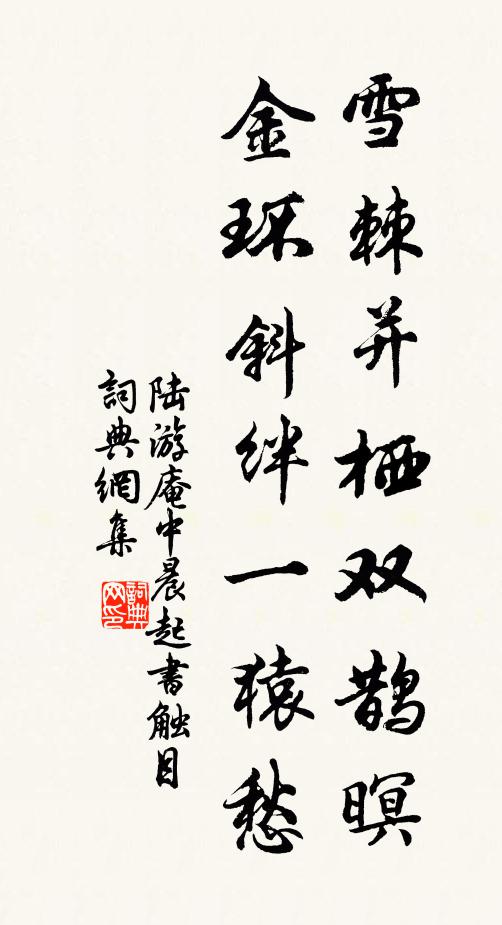 雪棘并栖双鹊暝
金环斜绊一猿愁
陆游庵中晨起書触目
詞典網集
詞典网印